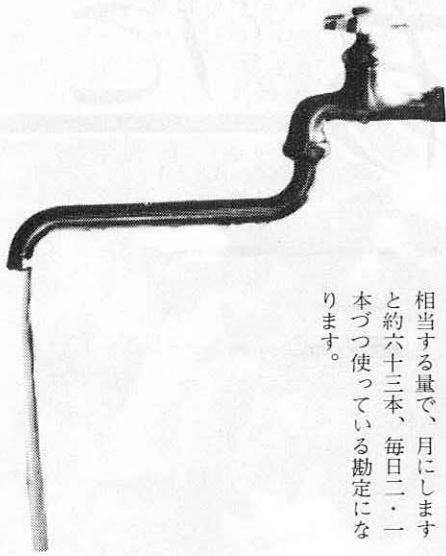 相当する量で、月にします
と約六十三本、毎日二・一
本づつ使っている勘定にな
ります。